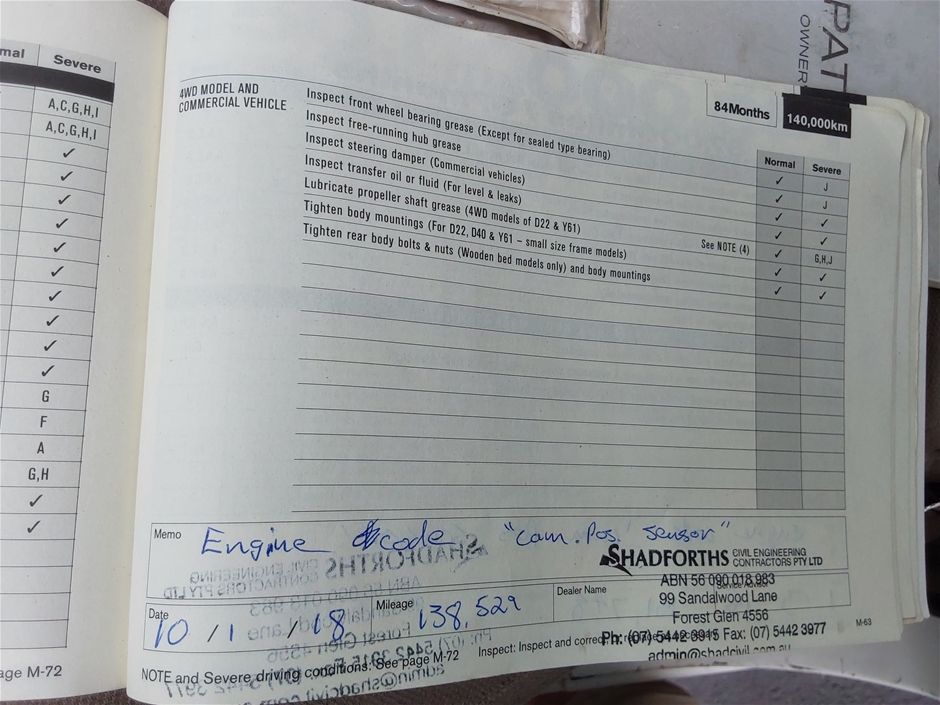 mal Severe
A,C,G,H,I
A,C,G,H,I
✓
✓
✓
✓
✓
✓
✓
✓
✓
✓
G
F
A
G,H
✓
✓
age M-72
PAT
OWNER
84Months 140,000km
4WD MODEL AND
COMMERCIAL VEHICLE
Normal Severe
Inspect front wheel bearing grease (Except for sealed type bearing) ✓ J
Inspect free-running hub grease ✓ J
Inspect steering damper (Commercial vehicles) ✓ ✓
Inspect transfer oil or fluid (For level & leaks) ✓ ✓
Lubricate propeller shaft grease (4WD models of D22 & Y61) See NOTE (4) ✓ G,H,J
Tighten body mountings (For D22, D40 & Y61 – small size frame models) ✓ ✓
Tighten rear body bolts & nuts (Wooden bed models only) and body mountings ✓ ✓
Memo Engine code "cam. Pos. Sensor"
SHADFORTHS CIVIL ENGINEERING
CONTRACTORS PTY LTD
ABN 56 090 018 983
Date 10 / 1 / 18 Mileage 138,529 Dealer Name
99 Sandalwood Lane
Forest Glen 4556
Ph: (07) 5442 3915 Fax: (07) 5442 3977
admin@shadcivil.com.au
M-63
NOTE and Severe driving conditions: See page M-72
Inspect: Inspect and correct